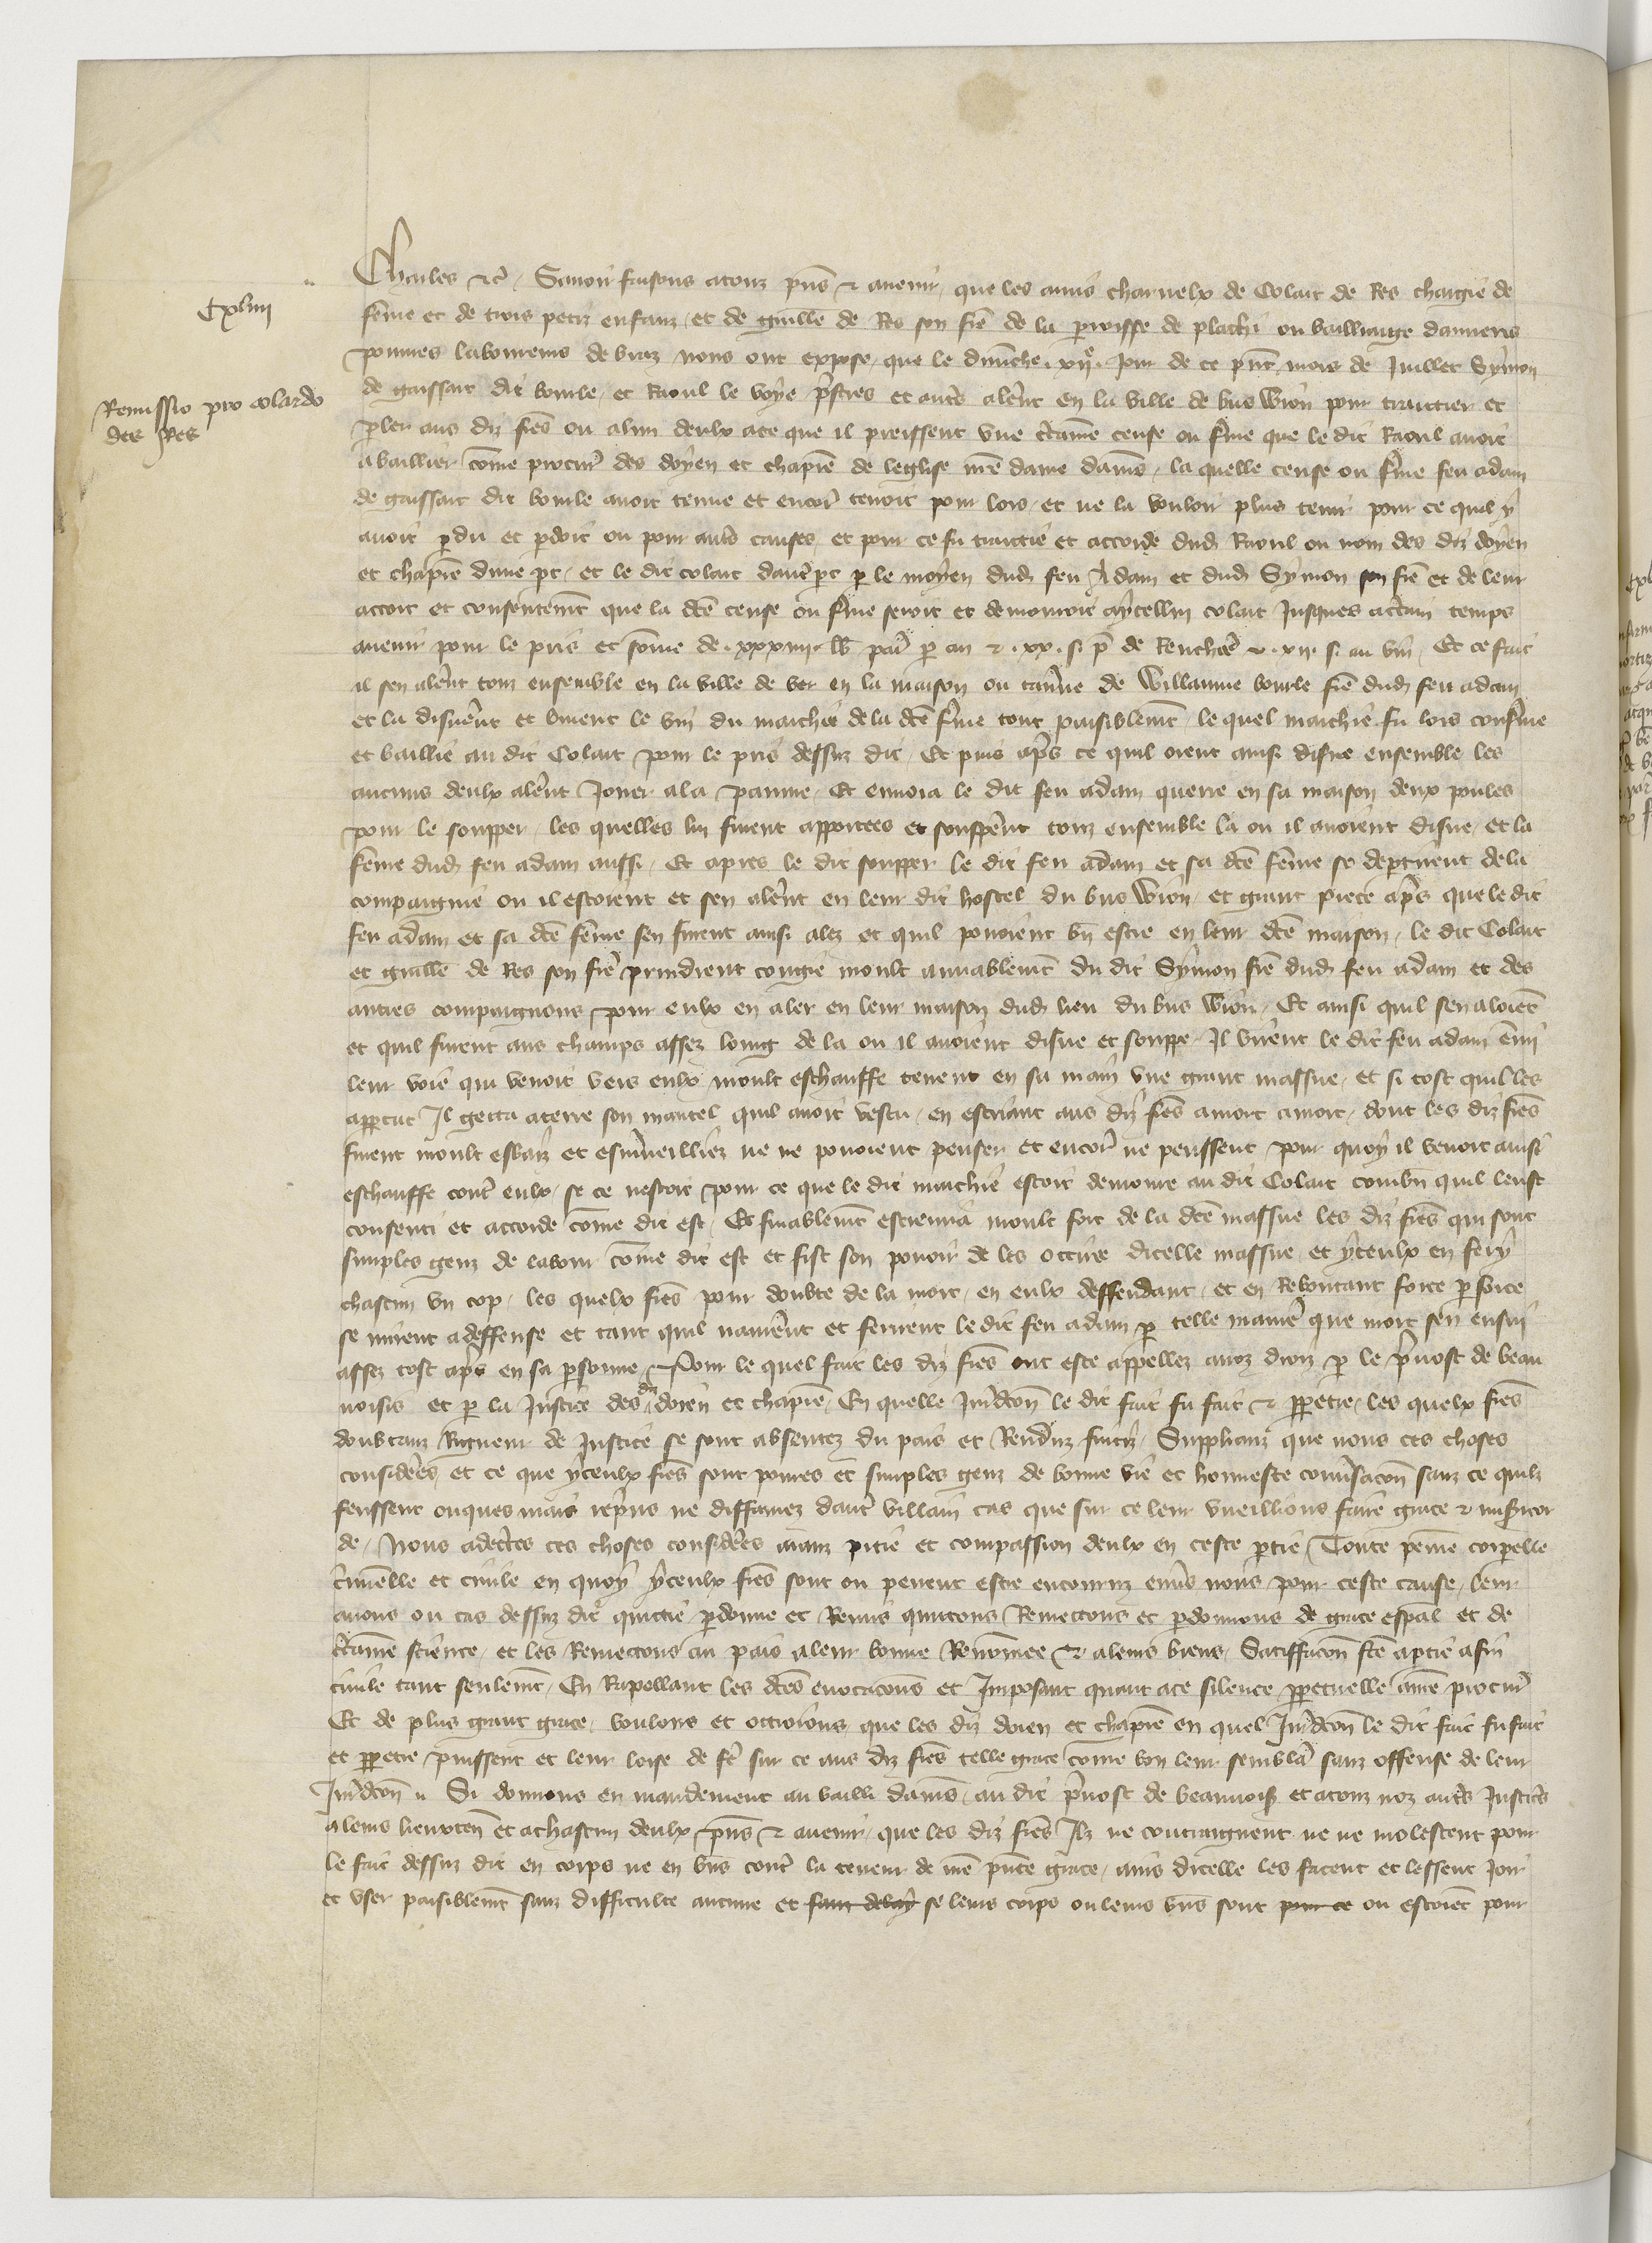 Charles etc. Savoir faisons a touz pns et avenir, que les amis charnelx de Colart de Res chargie de
Cxliiii
feme et de trois petiz enfanz, et de guille de Res son fre de la proisse de plachi ou bailliaige damiens
povres laboureurs de braz nous ont expose, que le dimenche xije jour de ce pnt mois de Juillet Symon
de gaissart dit bourle, et Raoul le voye prestres et autres alerent en la ville de bus Wion pour traictier et
Remissio pro colardo
des Res
pler aus diz fres ou a lun deulx a ce que il preissent une certaine cense ou ferme que le dit Raoul avoit
a baillier come procur des doyen et chapitre de leglise nre dame damiens, la quelle cense ou ferme feu adam
de gaissart dit bourle avoit tenue et encor tenoit pour lors, et ne la vouloit plus tenir pour ce quil y
avoit pdu et pdoit ou pour autres causes, et pour ce fu traictie et accorde dud Raoul ou nom des diz doyen
et chapitre dune pt, et le dit colart dautre pt p le moyen dud feu Adam et dud Symon son fre et de leur
accort et consentement que la dce cense ou ferme seroit et demourroit a ycellui colart Jusques a certain temps
avenir pour le pris et some de xxxiiij lb par p an et xx s p de Renchiere et xij s au vin, Et ce fait
il sen alerent touz ensemble en la ville de ver en la maison ou taverne de Willaume bourle fre dud feu adam
et la disnerent et burent le vin du marchie de la dce ferme tout paisiblement, le quel marchie fu lors conferme
et baillie au dit Colart pour le pris dessuz dit, Et puis apres ce quil orent ainsi disne ensemble les
aucuns deulx alerent Jouer a la paume, Et envoia le dit feu adam querre en sa maison deux poules
pour le soupper, les quelles lui furent apportees et soupperent touz ensemble la ou il avoient disne, et la
feme dud feu adam aussi, Et apres le dit soupper le dit feu adam et sa dce feme se deptirent de la
compaignie ou il estoient et sen alerent en leur dit hostel du bus Wion, et grant piece apres que le dit
feu adam et sa dce feme sen furent ainsi alez et quil povoient bn estre en leur dce maison, le dit Colart
et guille de Res son fre prindrent congie moult amiablement du dit Symon fre dud feu adam et des
autres compaignons pour eulx en aler en leur maison dud lieu du bus Wion, Et ainsi quil sen aloient
et quil furent aus champs assez loing de la ou il avoient disne et souppe, Il virent le dit feu adam emi
leur voie qui venoit vers eulx moult eschauffe tenent en sa main une grant massue, et si tost quil les
appercut Il getta a terre son mantel quil avoit vestu, en escriant aus diz fres a mort a mort, dont les diz fres
furent moult esbaiz et esmerveilliez ne ne povoient penser et encor ne penssent pour quoy il venoit ainsi
eschauffe contre eulx, se ce nestoit pour ce que le dit marchie estoit demoure au dit Colart combn quil leust
consenti et accorde come dit est, Et finablement escremia moult fort de la dce massue les diz fres qui sont
simples genz de labour come dit est et fist son povoir de les occire dicelle massue, et yceulx en fery
chascun un cop, les quelx fres pour doubte de la mort, en eulx deffendant, et en Reboutant force p force
se mirent a deffense et tant quil navrerent et ferirent le dit feu adam p telle maniere que mort sen ensui
assez tost apres en sa psonne, Pour le quel fait les diz fres ont este appellez aux droiz p le prevost de beau
voisis et p la Justice des diz doien et chapitre, En quelle Juridicon le dit fait fu fait et ppetre, les quelx fres
doubtanz Rigueur de Justice se sont absentez du pais et Renduz fuitiz, Supplianz que nous ces choses
considerees et ce que yceulx fres sont povres et simples genz de bonne vie et honneste conversacon sanz ce quilz
feussent onques mais repris ne diffamez dautre villain cas que sur ce leur vueillions faire grace et misericor
de, Nous adecertes ces choses considerees aianz pitie et compassion deulx en ceste ptie, Toute peine corpelle
criminelle et civile en quoy yceulx fres sont ou pevent estre encouruz envers nous pour ceste cause, leur
avons ou cas dessuz dit quictie pdonne et Remis quictons Remectons et pdonnons de grace espal et de
certaine science, et les Remectons au pais a leur bonne Renommee et a leurs biens, Satiffacon fte a ptie a fin
civile tant seulement, En Rapellant les dces evocacons et Imposant quant a ce silence ppetuelle a nre procur
Et de plus grant grace, voulons et octroions que les diz doien et chapitre en quel Juridicon le dit fait fu fait
et ppetre puissent et leur loise de fre sur ce aus diz fres telle grace come bon leur semblera sanz offense de leur
Juridicon. Si donnons en mandement au bailli damiens, au dit prevost de beauvoisis et a touz noz autres Justiciers
a leurs lieuxten et a chascun deulx pns et avenir, que les diz fres Ilz ne contraignent ne ne molestent pour
le fait dessuz dit en corps ne en biens contre la teneur de nre pnte grace, ains dicelle les facent et lessent Joir
et user paisiblement sanz difficulte aucune et sanz delay se leurs corps ou leurs bns sont pour ce ou estoient pour